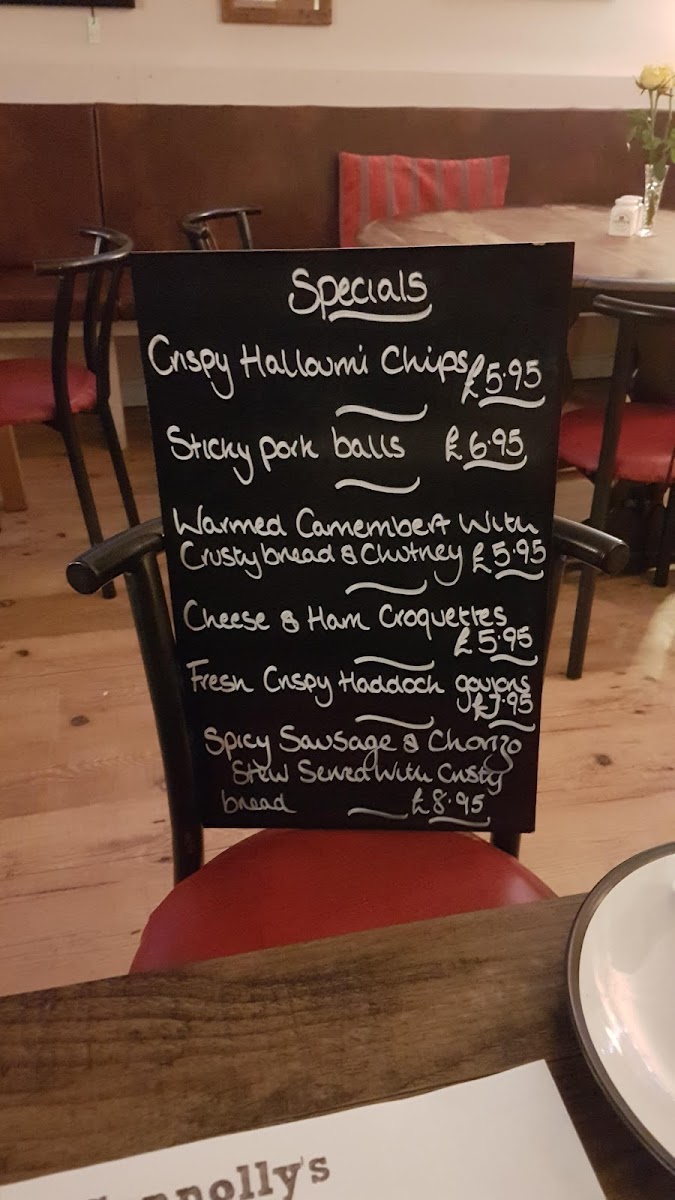 Specials
Crispy Halloumi Chips £5.95
Sticky pork balls £6.95
Warmed Camembert With
Crusty bread & Chutney £5.95
Cheese & Ham Croquettes
£5.95
Fresh Crispy Haddock goujons
£7.95
Spicy Sausage & Chorizo
Stew Served With Crusty
bread £8.95